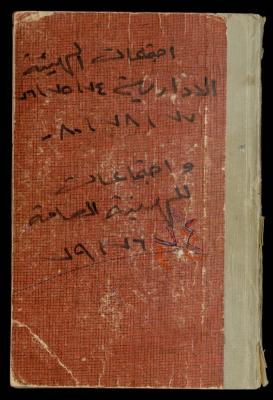 اجتماعات الهيئة
الادارية ٧٤ / ٧٥ / ٧٦
٧٧ / ٧٨ / ٨٠ -
و اجتماعات
للهيئة العامة
٧٤ / ٧٦ / ٧٩